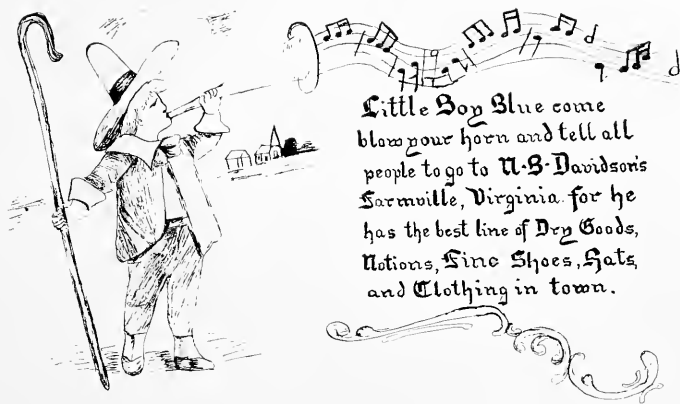 Little Boy Blue come
blow your horn and tell all
people to go to N. B. Davidson's
Farmville, Virginia. for he
has the best line of Dry Goods,
Notions, Fine Shoes, Hats,
and Clothing in town.